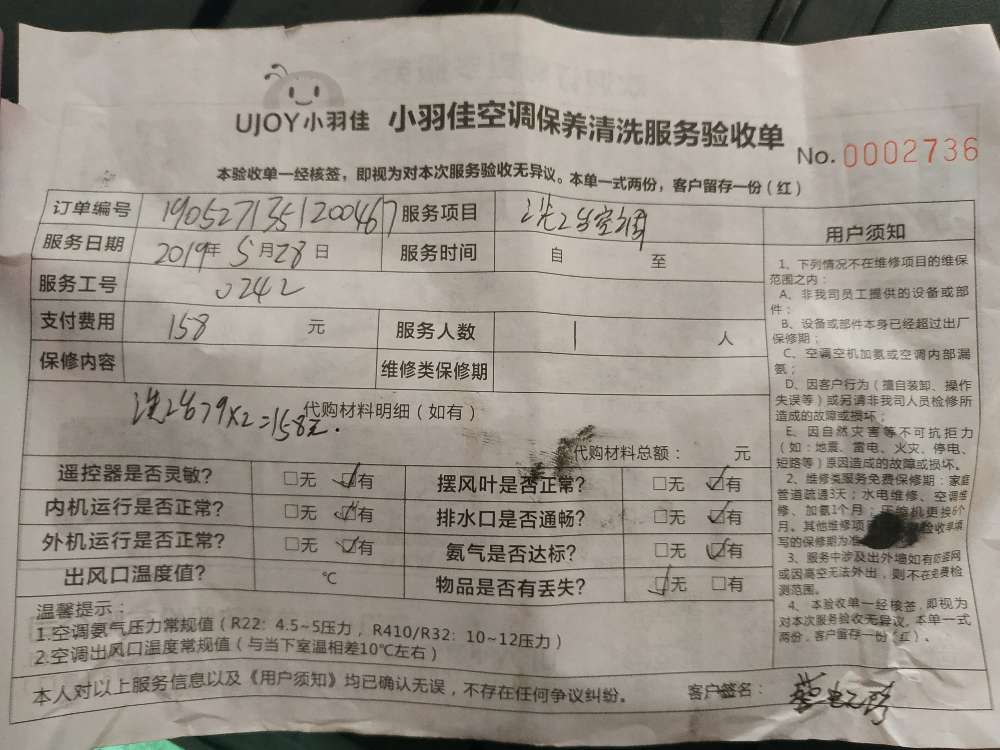 UJOY小羽佳 小羽佳空调保养清洗服务验收单
No. 0002736
本验收单一经核签，即视为对本次服务验收无异议。本单一式两份，客户留存一份（红）
订单编号 1905271351200467 服务项目 洗2台空调
服务日期 2019年5月28日 服务时间 自 至
服务工号 0242
支付费用 158 元 服务人数 1 人
保修内容 维修类保修期
洗2台79X2=158元. 代购材料明细（如有）
代购材料总额： 元
遥控器是否灵敏? □无 ☑有 摆风叶是否正常? □无 ☑有
内机运行是否正常? □无 ☑有 排水口是否通畅? □无 ☑有
外机运行是否正常? □无 ☑有 氨气是否达标? □无 ☑有
出风口温度值? ℃ 物品是否有丢失? ☑无 □有
温馨提示：
1.空调氨气压力常规值（R22：4.5~5压力，R410/R32：10~12压力）
2.空调出风口温度常规值（与当下室温相差10℃左右）
本人对以上服务信息以及《用户须知》均已确认无误，不存在任何争议纠纷。 客户签名：
用户须知
1、下列情况不在维修项目的维保
范围之内：
A、非我司员工提供的设备或部
件；
B、设备或部件本身已经超过出厂
保修期；
C、空调空机加氨或空调内部漏
氨；
D、因客户行为（擅自装卸、操作
失误等）或另请非我司人员检修所
造成的故障或损坏；
E、因自然灾害等不可抗拒力
（如：地震、雷电、火灾、停电、
短路等）原因造成的故障或损坏。
2、维修类服务免费保修期：家庭
管道疏通3天；水电维修、空调维
修、加氨1个月；压缩机更换6个
月。其他维修项 验收单填
写的保修期为准
3、服务中涉及出外墙如有防盗网
或因高空无法外出，则不在免费检
测范围。
4、本验收单一经核签，即视为
对本次服务验收无异议。本单一式
两份，客户留存一份（红）。